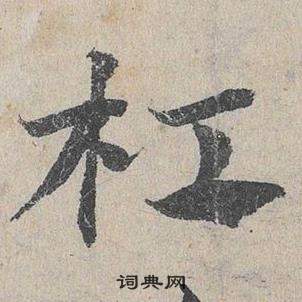 杠
词典网